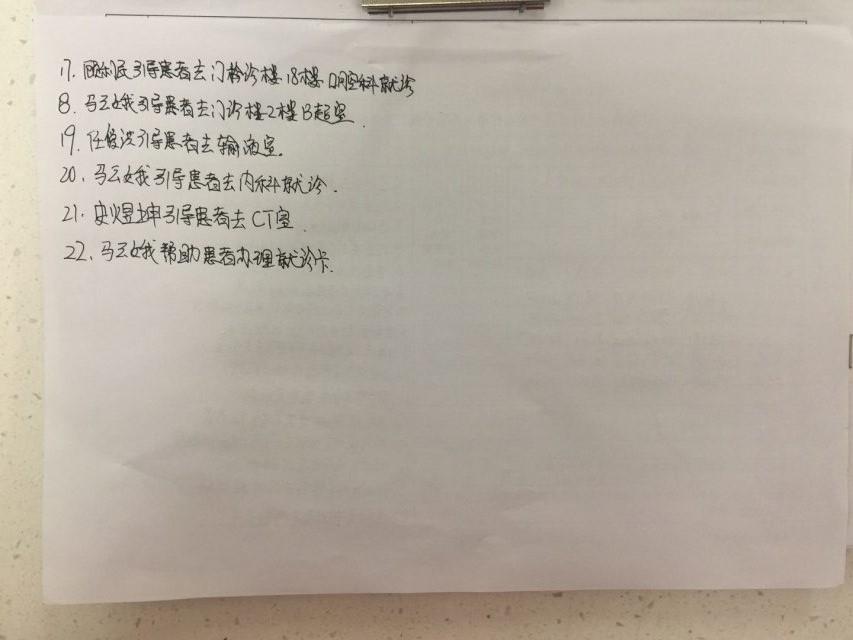 17. 引导患者去门诊楼18楼口腔科就诊
8. 马云娥引导患者去门诊楼2楼B超室.
19. 任俊波引导患者去输液室.
20. 马云娥引导患者去内科就诊.
21. 史煜坤引导患者去CT室.
22. 马云娥帮助患者办理就诊卡.